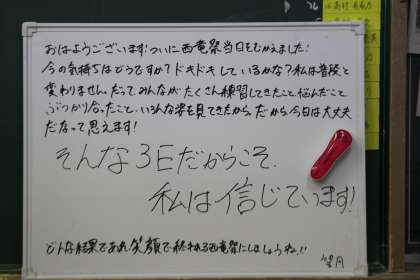 おはようございます！ついに西竜祭当日をむかえました！
今の気持ちはどうですか？ドキドキしているかな？私は普段と
変わりません。だってみんながたくさん練習してきたこと、悩んだこと
ぶつかり合ったこと、いろんな姿を見てきたから。だから、今日は大丈夫
だなって思えます！
そんな3Eだからこそ、
私は信じています！
どんな結果であれ、笑顔で終われる西竜祭にしましょうね！！
望月